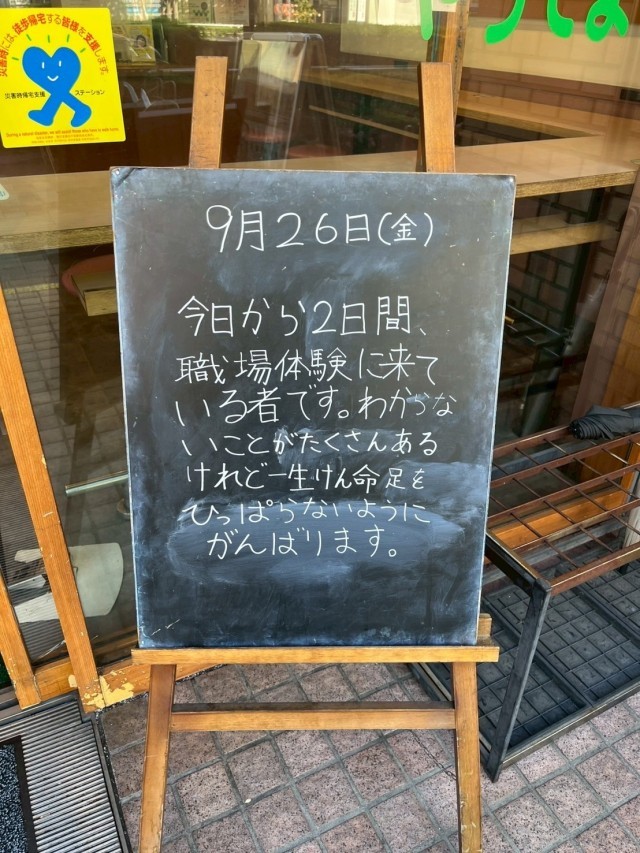 災害時には、徒歩帰宅する皆様を支援します。
災害時帰宅支援
ステーション
9月26日(金)
今日から2日間、
職場体験に来て
いる者です。わからな
いことがたくさんある
けれど一生けん命足を
ひっぱらないように
がんばります。